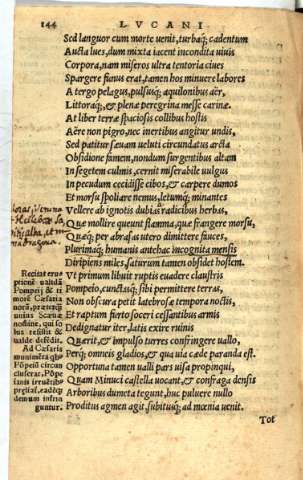 144 LVCANI
Sed languor cum morte uenit, turbaq; cadentum
Aucta lues, dum mixta iacent incondita uiuis
Corpora, nam miseros ultra tentoria ciues
Spargere funus erat, tamen hos minuere labores
A tergo pelagus, pulsusq; aquilonibus aër,
Littoraq;, & plenæ peregrina messe carinæ.
At liber terræ spaciosis collibus hostis
Aëre non pigro, nec inertibus angitur undis,
Sed patitur sæuam ueluti circundatus arcta
Obsidione famem, nondum surgentibus altam
In segetem culmis, cernit miserabile uulgus
In pecudum cecidisse cibos, & carpere dumos
Et morsu spoliare nemus, letumq; minantes
Vellere ab ignotis dubias radicibus herbas,
Quæ mollire queunt flamma, quæ frangere morsu,
Quæq; per abrasas utero dimittere fauces,
Plurimaq; humanis antehac incognita mensis
Diripiens miles, saturum tamen obsidet hostem.
Vt primum libuit ruptis euadere claustris
Pompeio, cunctasq; sibi permittere terras,
Non obscura petit latebrosæ tempora noctis,
Et raptum furto soceri cessantibus armis
Dedignatur iter, latis exire ruinis
Quærit, & impulso turres confringere uallo,
Perq; omneis gladios, & qua uia cæde paranda est.
Opportuna tamen ualli pars uisa propinqui,
Quam Minuci castella uocant, & confraga densis
Arboribus dumeta tegunt, huc puluere nullo
Proditus agmen agit, subitusq; ad mœnia uenit.
Tot
Recitat eru
ptionē ualidā
Pompeij & ti
morē Cæsaria
norū, prætér
unius Scæuæ
nomine, qui so
lus restitit &
ualde defēdit.
Ad Cæsaris
munimēta qbꝰ
Pōpeiū circum
cluserat, Pōpe
iani
demum infrin
guntur.